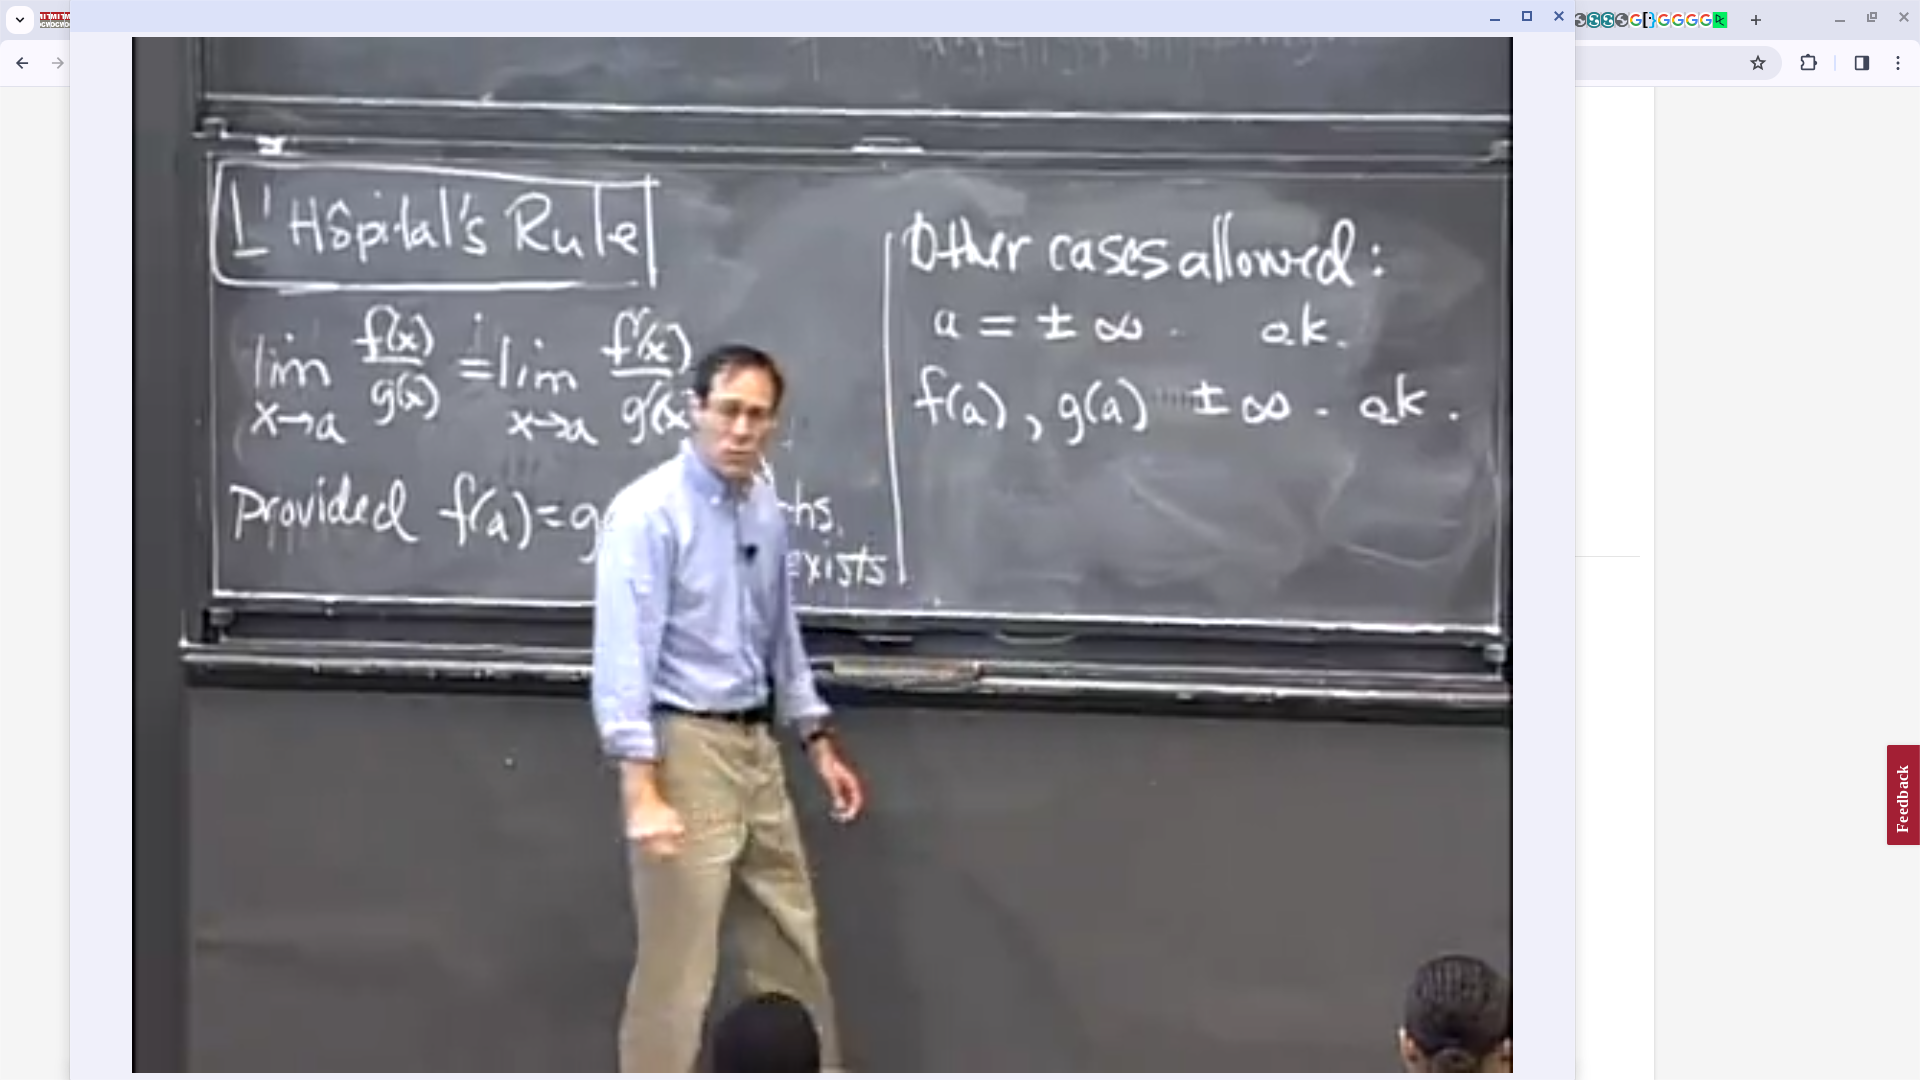 L'Hôpital's Rule
lim x→a f(x)/g(x) = lim x→a f'(x)/g'(x
Provided f(a)=g
hs.
exists
Other cases allowed:
a = ± ∞ . ok.
f(a), g(a) ± ∞ . ok.
Feedback